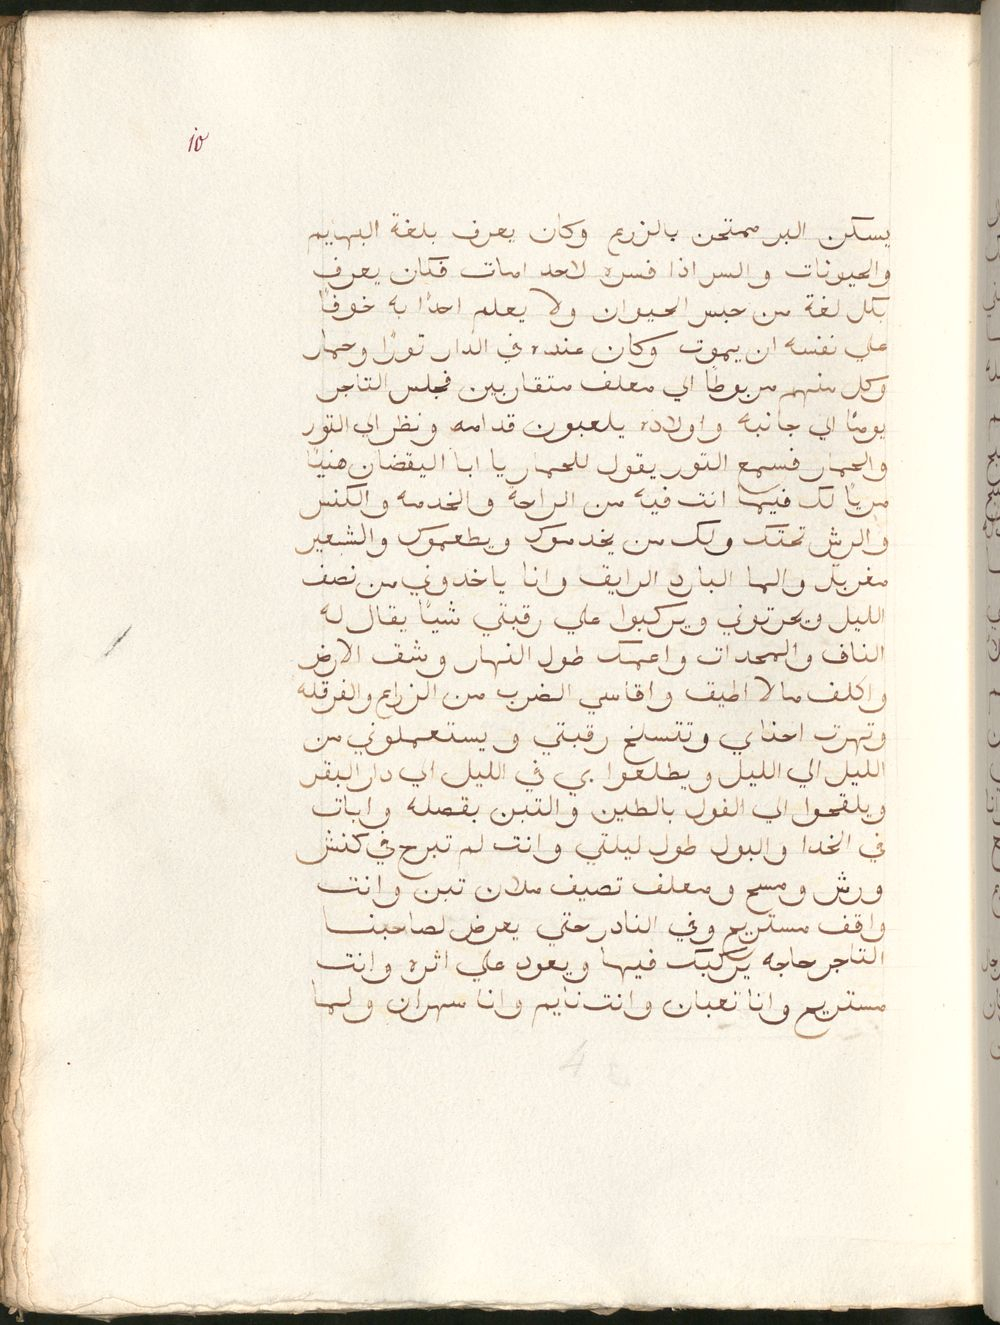 10
يسكن البر ممتحن بالزرع وكان يعرف بلغة البهايم
والحيونات والسر اذا فسره لاحد امات فكان يعرف
بكل لغة من جبس الحيوان ولا يعلم احدًا به خوفًا
علي نفسه ان يموت وكان عنده في الدار تورًا وحمار
وكل منهم مربوطًا الي معلف متقاربين فجلس التاجر
يومًا الي جانبه واولاده يلعبون قدامه ونظر الي التور
والحمار فسمع التور يقول للحمار يا ابا اليقضان هنيًا
مريًا لك فيما انت فيه من الراحة والخدمه والكنس
والرش تحتك ولك من يخدموك ويطعموك والشعير
مغربل والما البارد الرايق وانا ياخدوني من نصف
الليل ويحرتوني ويركبوا علي رقبتي شيًا يقال له
الناف والمحدات واعمك طول النهار وشق الارض
واكلف مالا اطيق واقاسي الضرب من الزراع والفرقله
وتهرت احناي وتتسلخ رقبتي ويستعملوني من
الليل الي الليل ويطلعوا بي في الليل الي دار البقر
ويلقحوا الي الفول بالطين والتبن بقصله وابات
في الخدا والبول طول ليلتي وانت لم تبرح في كنش
ورش ومسح ومعلف تصيف ملان تبن وانت
واقف مستريح وفي النادر حتي يعرض لصاحبنا
التاجر حاجه يركبك فيها ويعود علي اثره وانت
مستريح وانا تعبان وانت نايم وانا سهران ولما